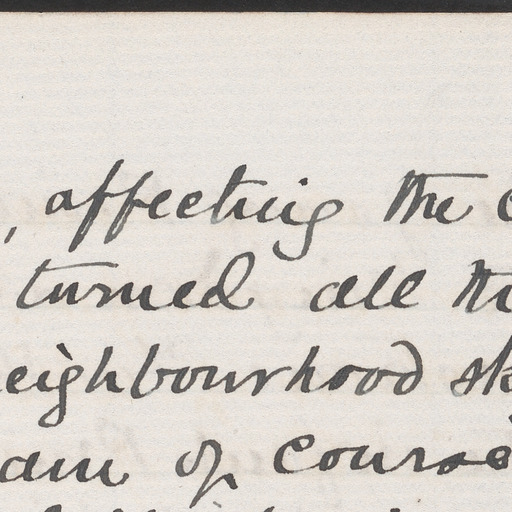 , affecting the
turned all
neighbourhood
am of course